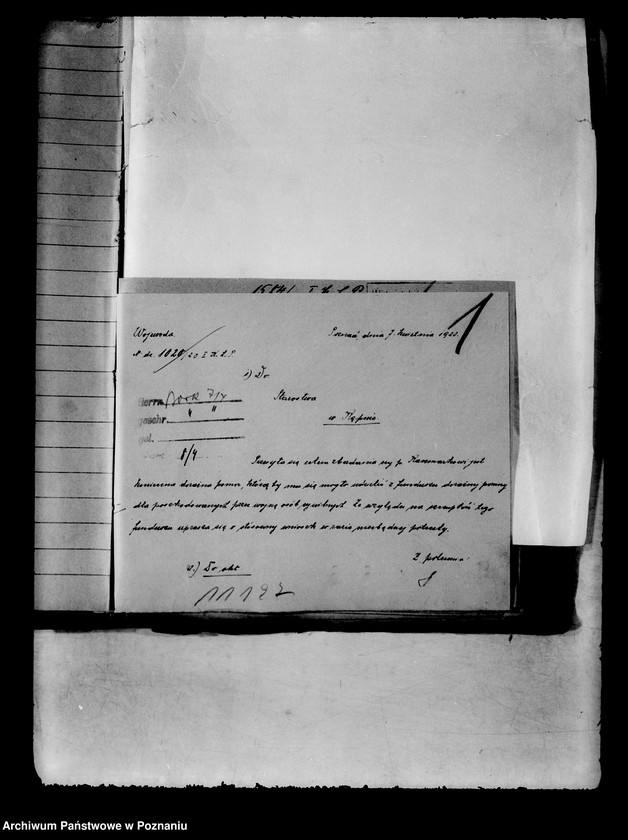 Wojewoda
Poznań dnia 7. kwietnia 1920.
N. dz. 1020/20 I. H. L. P.
1) Do
Starostwa
w Kępnie
Herrn
geschr. " "
gel.
8/4
Przesyła się celem zbadania czy p. Kaczmarkowi jest
konieczna doraźna pomoc, którą by mu się mogło udzielić z funduszu doraźnej pomocy
dla poszkodowanych przez wojnę osób cywilnych. Ze względu na szczupłość tego
funduszu uprasza się o stosowny wniosek w razie niezbędnej potrzeby.
Z polecenia
2.) Do akt
11197
Archiwum Państwowe w Poznaniu